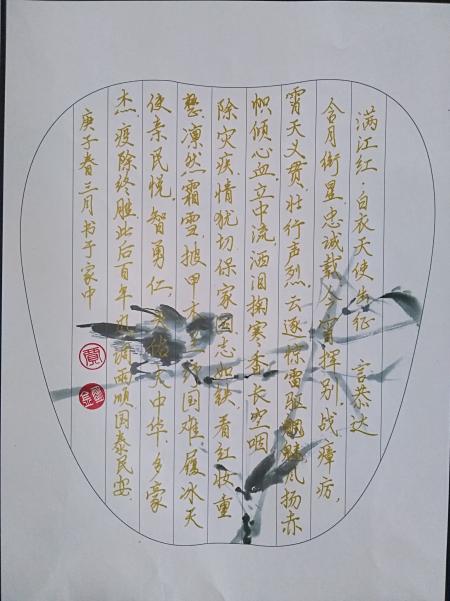 满江红·白衣天使出征 言恭达
含月衔星，忠诚载、今宵挥别。战瘴疠，
霄天义贯，壮行声烈。云逐标雷驱魍魅，风扬赤
帜倾心血。立中流、洒泪掬寒香，长空咽。
除灾疾，情犹切。保家国，志如铁。看红妆重
凛然霜雪。披甲 国难，履冰天
使亲民悦。智勇仁， 大中华，多豪
杰。疫除终胜此后百年 雨顺，国泰民安。
庚子春三月书于家中